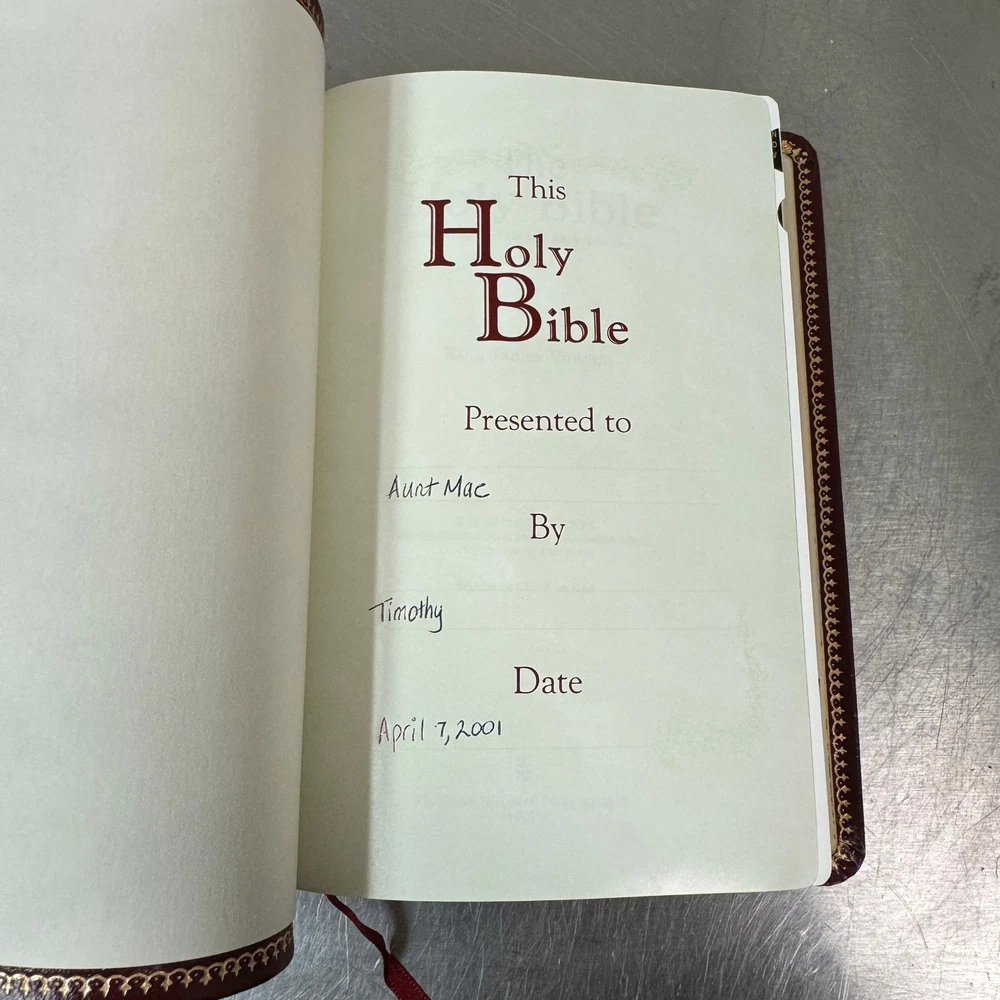 This
Holy
Bible
Presented to
Aunt Mac
By
Timothy
Date
April 7, 2001